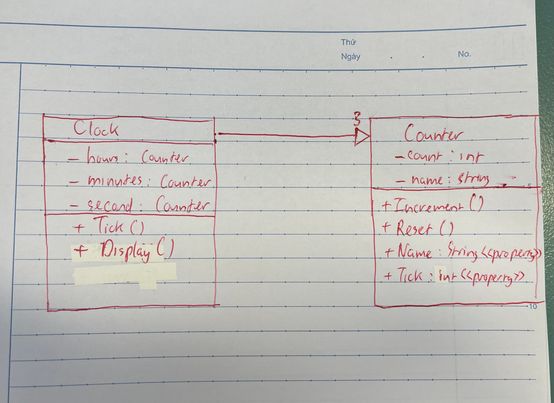 Thứ
Ngày . . No.
3
Clock
- hours: Counter
- minutes: Counter
- second: Counter
+ Tick()
+ Display()
Counter
- count: int
- name: string
+ Increment()
+ Reset()
+ Name: String <<property>>
+ Tick: int <<property>>
10